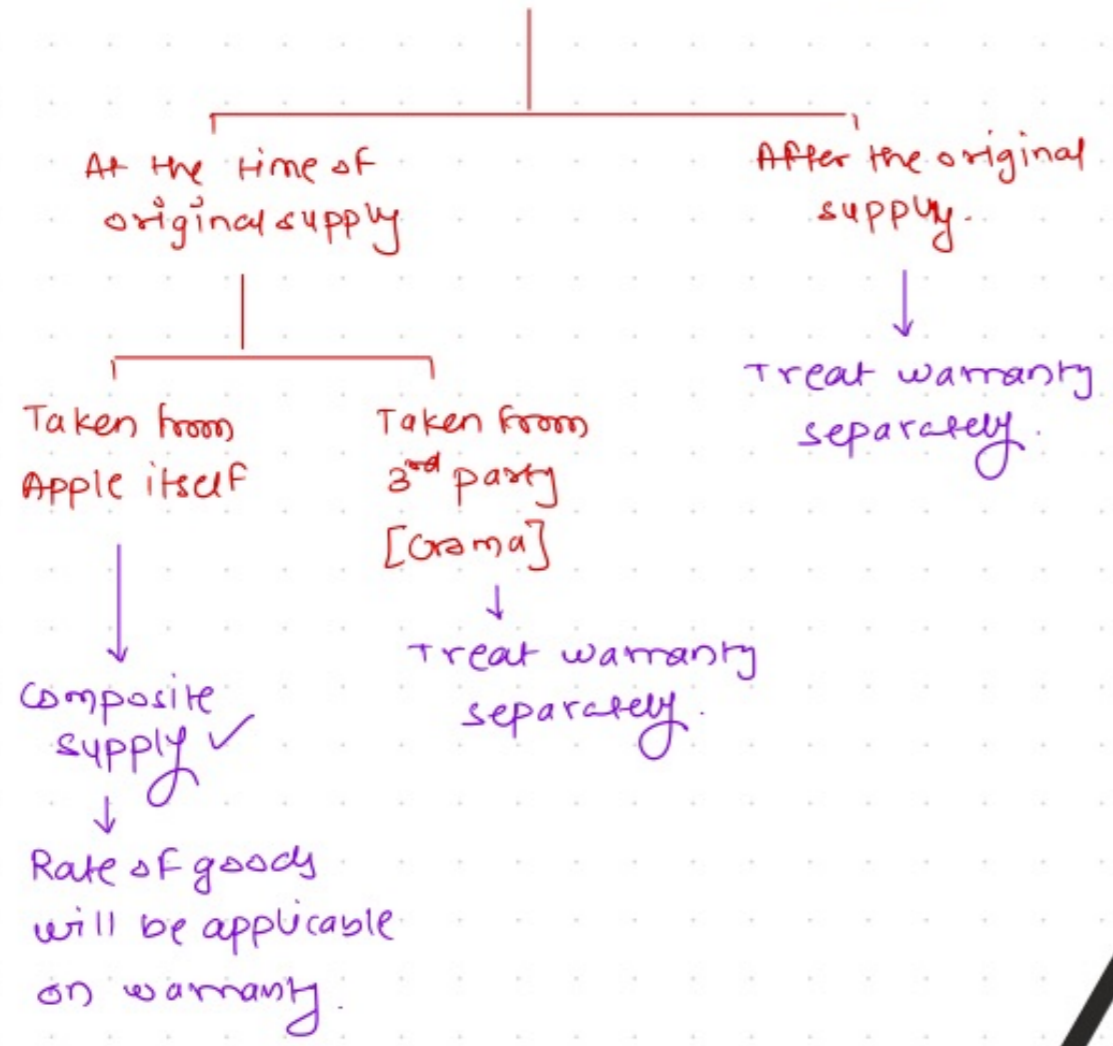 At the time of
original supply
After the original
supply.
Treat warranty
separately.
Taken from
Apple itself
Taken from
3rd party
[Croma]
Treat warranty
separately.
Composite
supply ✓
Rate of goods
will be applicable
on warranty.